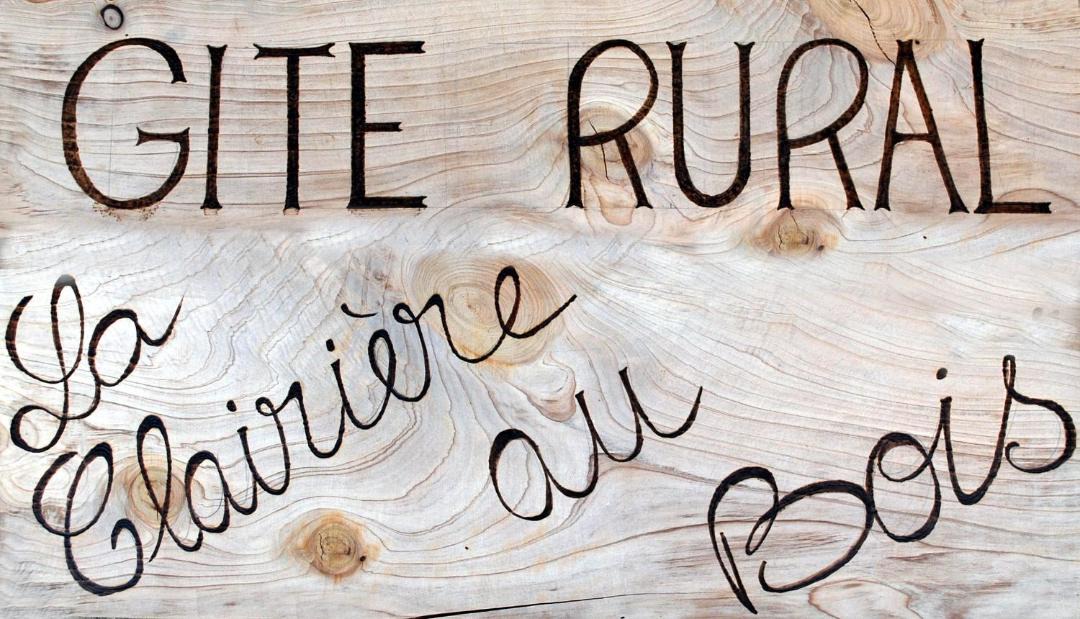 GITE RURAL
La
Clairière
au
Bois